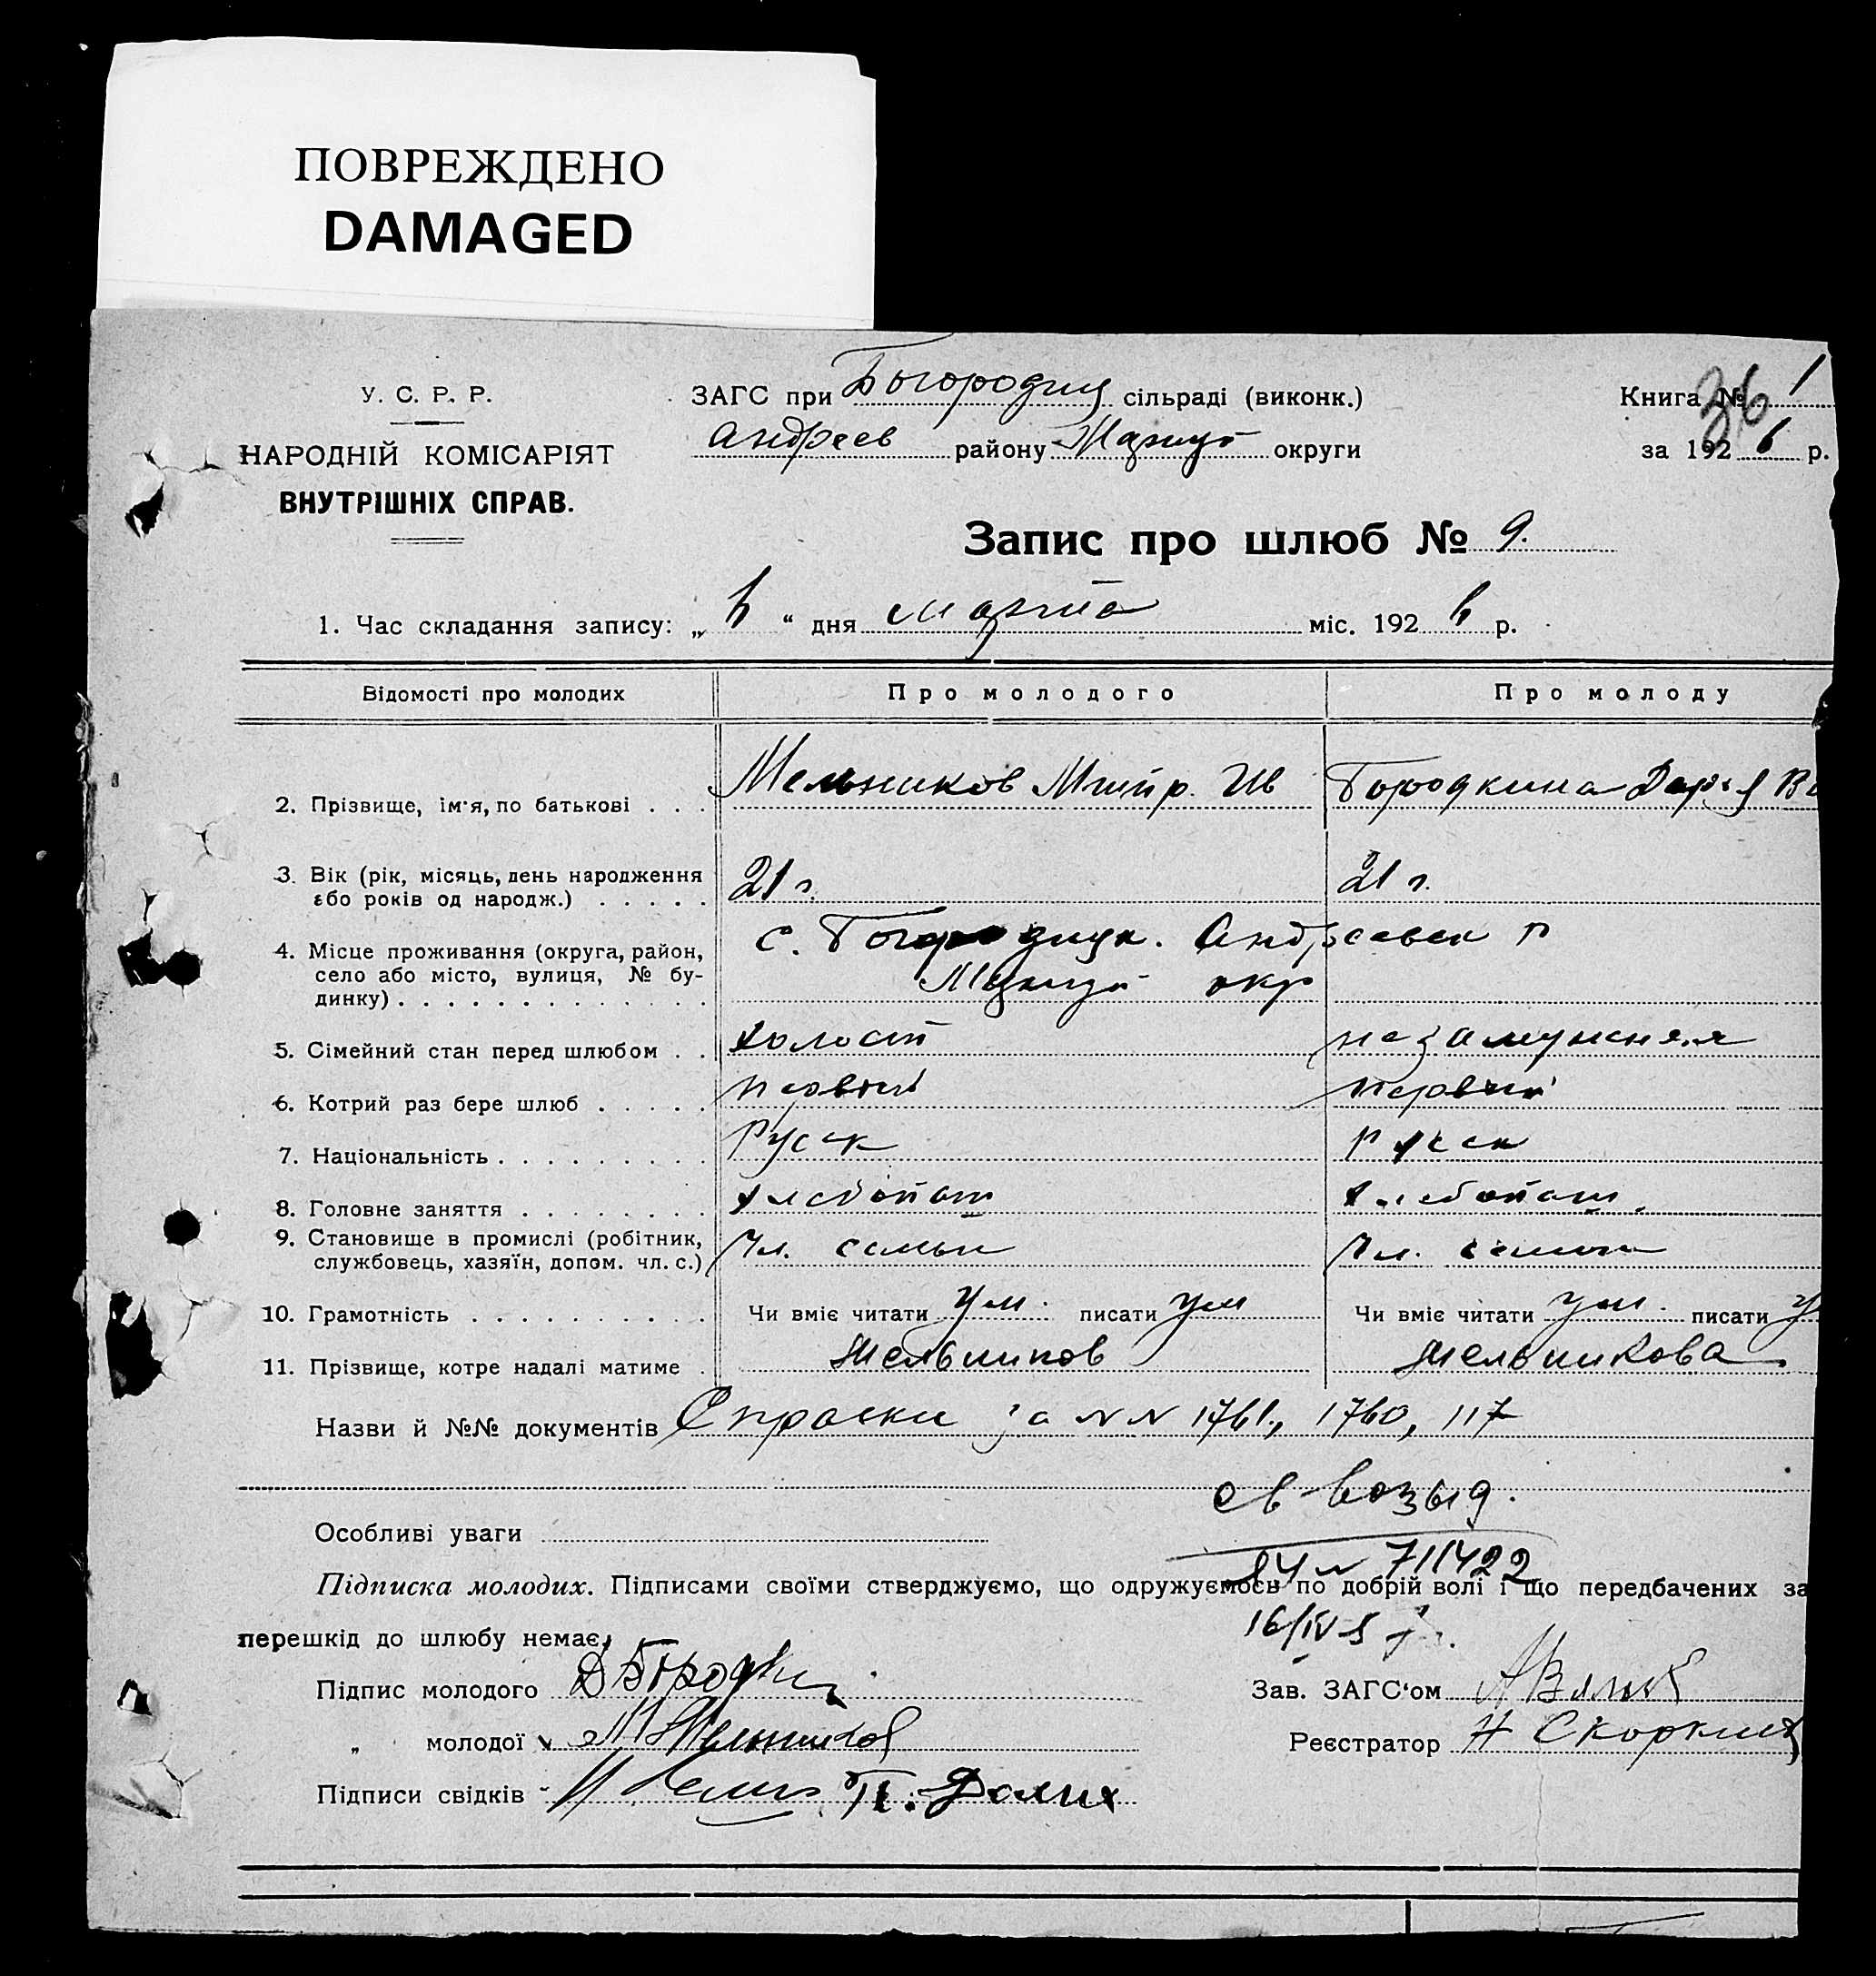 ПОВРЕЖДЕНО
DAMAGED
У. С. Р. Р.
НАРОДНІЙ КОМІСАРІЯТ
ВНУТРІШНІХ СПРАВ.
ЗАГС при Богородиц сільраді (виконк.)
Андреев району округи
Книга № 1
361
за 1926 р.
Запис про шлюб № 9.
1. Час складання запису: „6“ дня марта міс. 1926 р.
Відомості про молодих Про молодого Про молоду
2. Прізвище, ім'я, по батькові . . . Мельников Митр. Ив Бородкина Дарья
3. Вік (рік, місяць, день народження
або років од народж.) . . . . . 21 г. 21 г.
4. Місце проживання (округа, район, с. Андреевск р
село або місто, вулиця, № бу-
динку) . . . . . . . . . . . . . . окр
5. Сімейний стан перед шлюбом . . холост незамужняя
6. Котрий раз бере шлюб . . . . . первый первый
7. Національність . . . . . . . . . Руск руск
8. Головне заняття . . . . . . . . хлебопаш хлебопаш.
9. Становище в промислі (робітник,
службовець, хазяїн, допом. чл. с.) Чл. семьи Чл. семьи
10. Грамотність . . . . . . . . . . Чи вміє читати ум. писати ум Чи вміє читати ум. писати у
11. Прізвище, котре надалі матиме . Мельников Мельникова
Назви й №№ документів Справки за NN 1761, 1760, 117
Особливі уваги
711422
Підписка молодих. Підписами своїми стверджуємо, що одружуємось по добрій волі і що передбачених за
16/IV
перешкід до шлюбу немає.
Підпис молодого Д Бородки
Зав. ЗАГС'ом
„ молодої М Мельников
Реєстратор Н Скоркин
Підписи свідків П. Долих